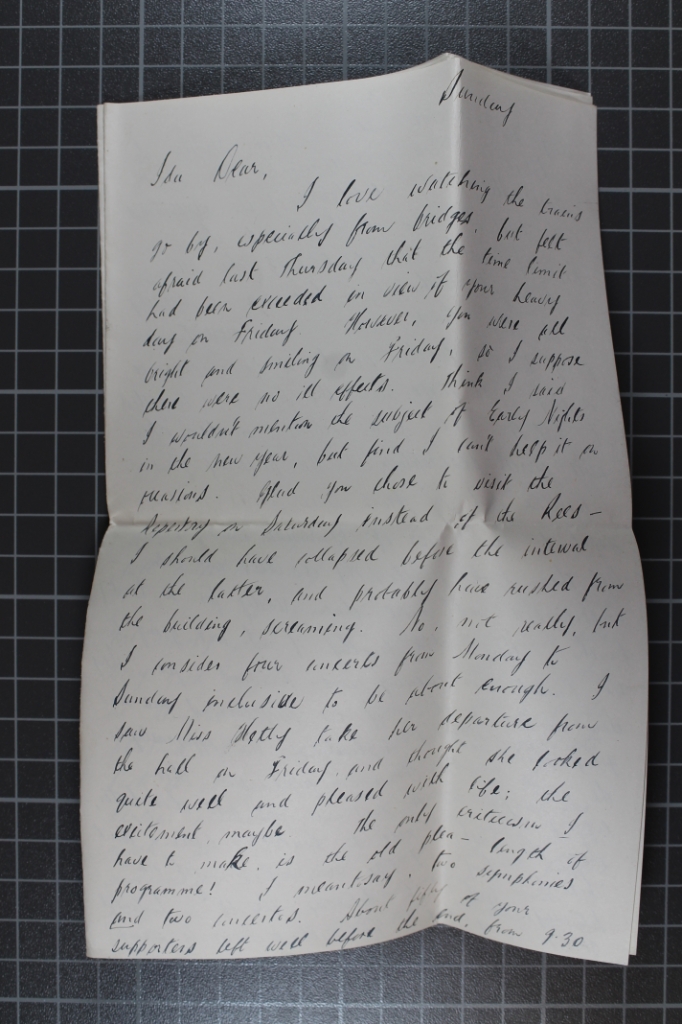 Sunday
Ida Dear,
I love watching the trains
go by, especially from bridges, but felt
afraid last Thursday that the time limit
had been exceeded in view of your heavy
day on Friday. However, you were all
bright and smiling on Friday, so I suppose
there were no ill effects. Think I said
I wouldn't mention the subject of Early Nights
in the new year, but find I can't help it on
occasions. Glad you chose to visit the
Repertory on Saturday instead of the Rees—
I should have collapsed before the interval
at the latter, and probably have rushed from
the building, screaming. No, not really, but
I consider four concerts from Monday to
Sunday inclusive to be about enough. I
saw Miss take her departure from
the hall on Friday, and thought she looked
quite well and pleased with life; the
excitement maybe. The only criticism I
have to make is the old plea — length of
programme! I meantersay, two symphonies
and two concertos. About fifty of your
supporters left well before the end, from 9.30